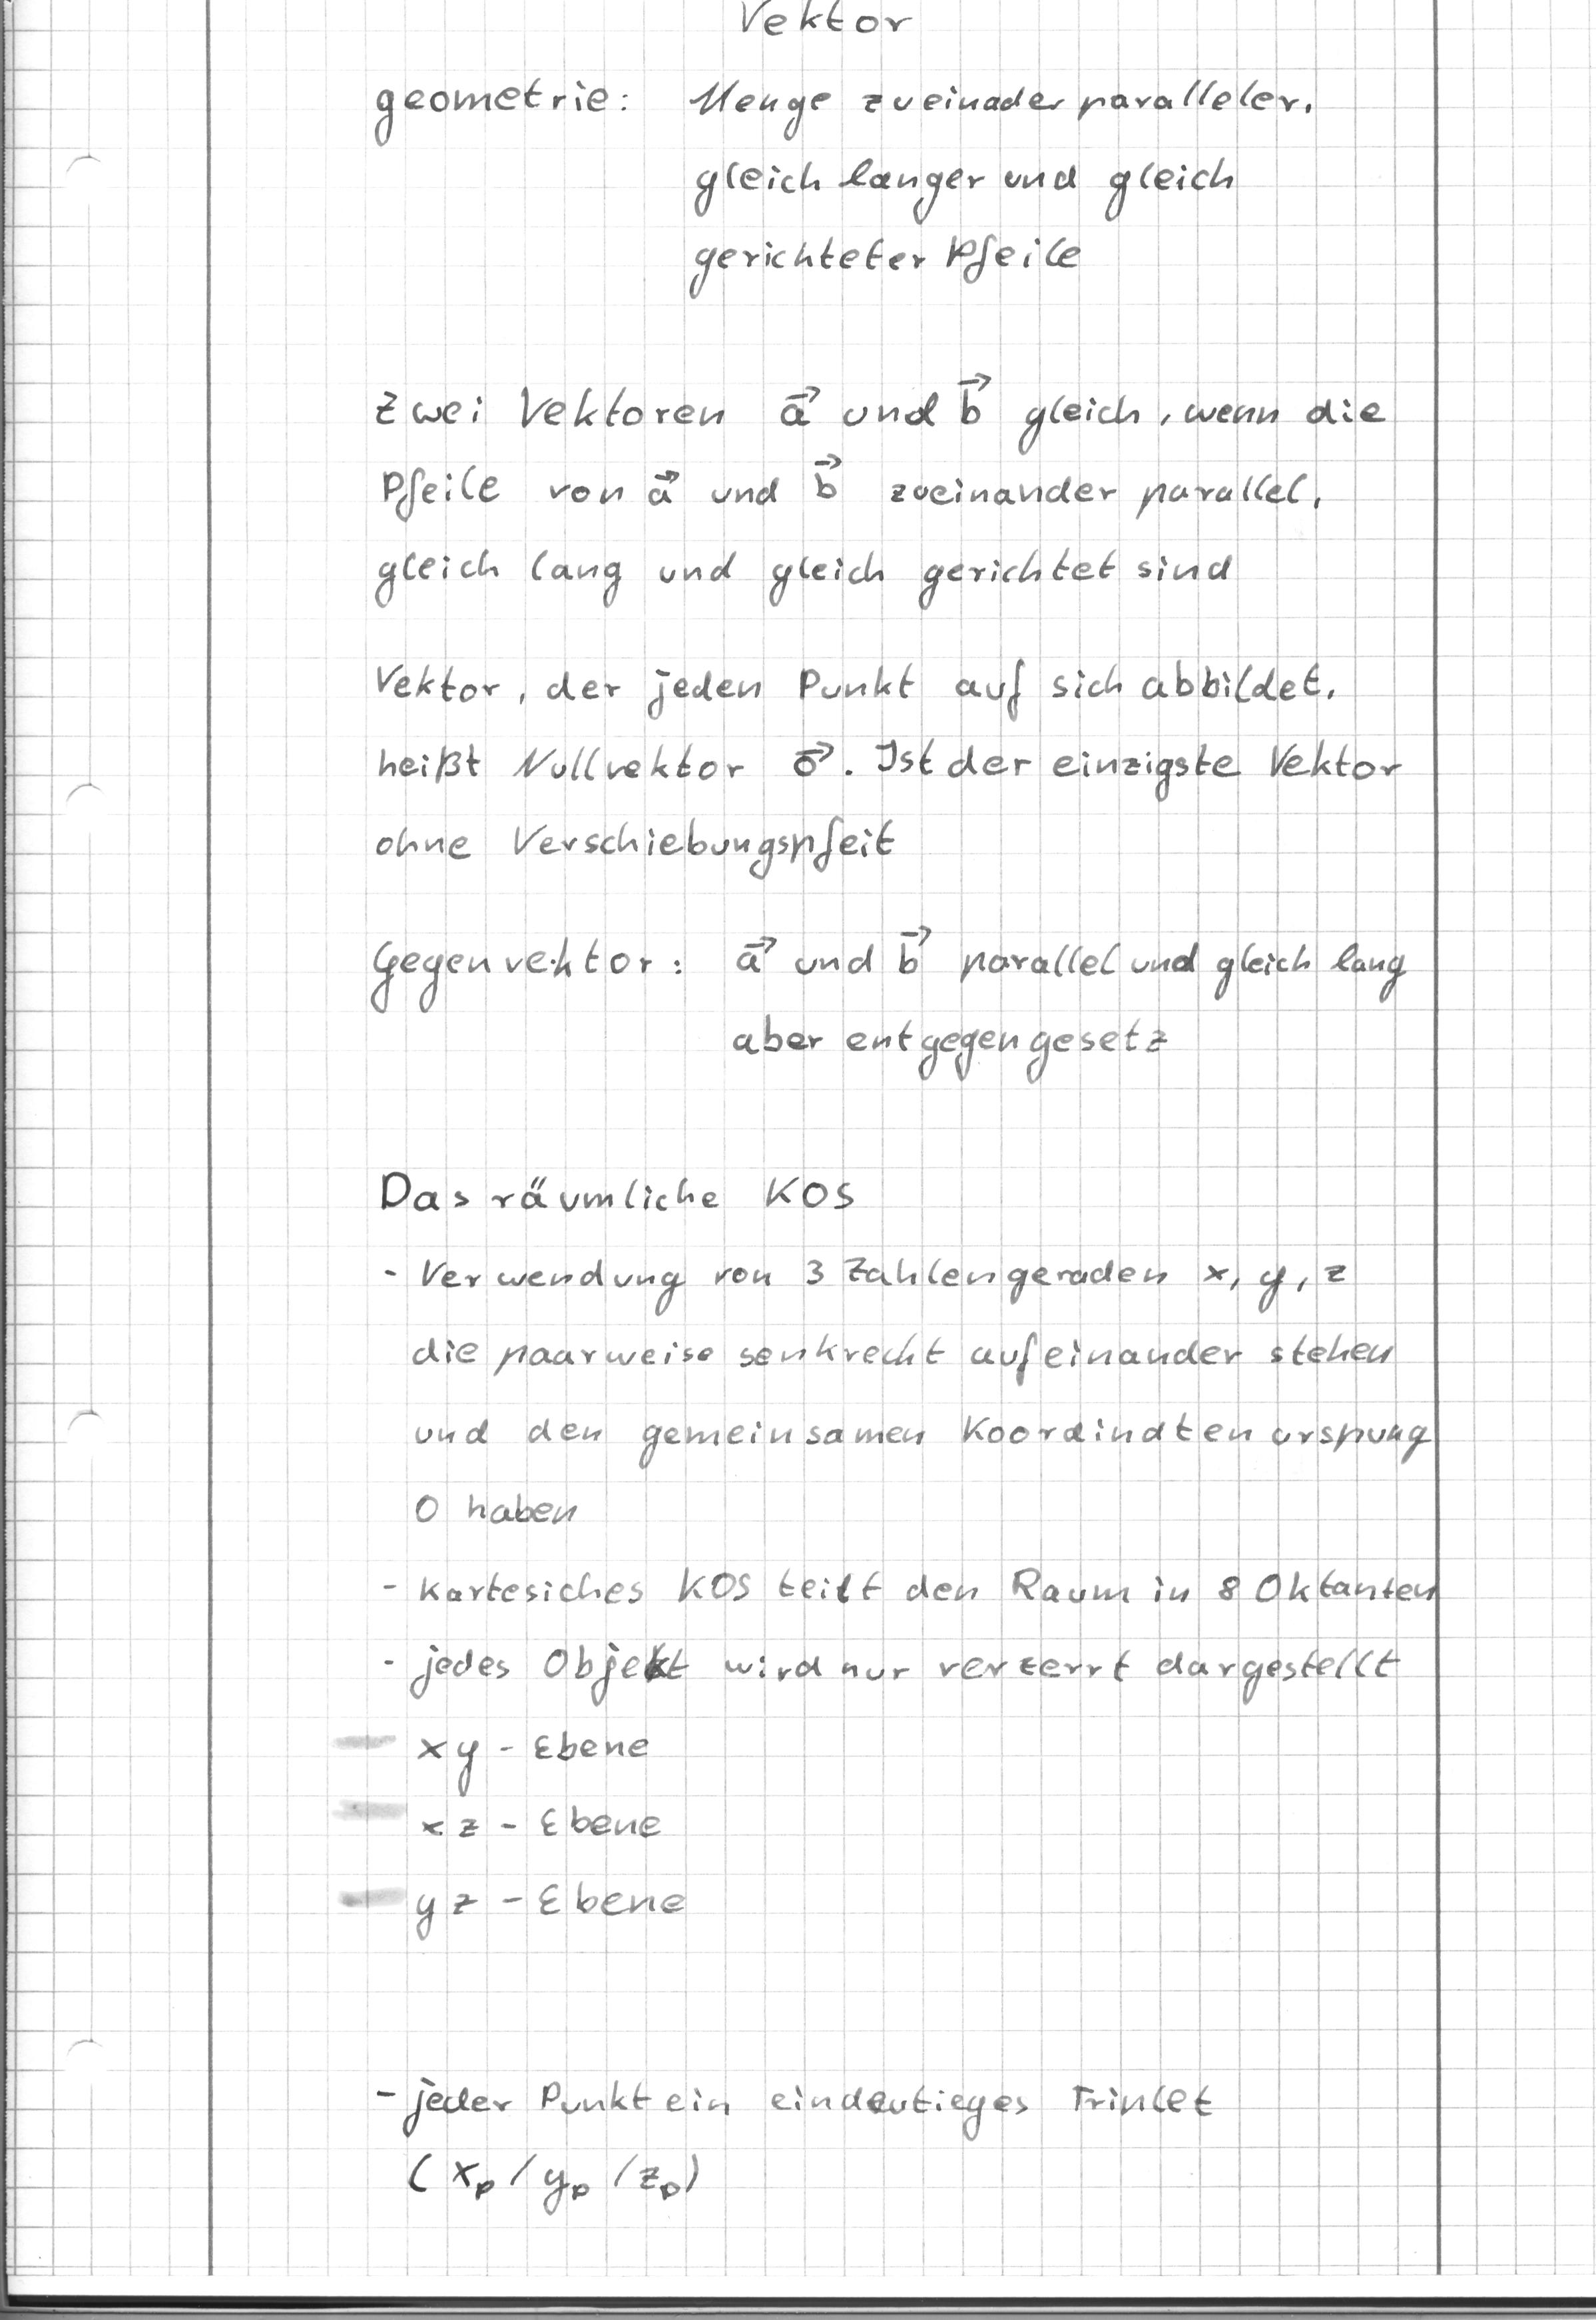 Vektor
geometrie: Menge zueinader paralleler,
gleich langer und gleich
gerichteter Pfeile
Zwei Vektoren a⃗ und b⃗ gleich, wenn die
Pfeile von a⃗ und b⃗ zueinander parallel,
gleich lang und gleich gerichtet sind
Vektor, der jeden Punkt auf sich abbildet,
heißt Nullvektor o⃗. Ist der einzigste Vektor
ohne Verschiebungspfeit
Gegenvektor: a⃗ und b⃗ parallel und gleich lang
aber entgegengesetz
Das räumliche KOS
- Verwendung von 3 Zahlengeraden x, y, z
die paarweise senkrecht aufeinander stehen
und den gemeinsamen Koordindtenurspung
0 haben
- kartesiches KOS teilt den Raum in 8 Oktanten
- jedes Objekt wird nur verzerrt dargestellt
xy - Ebene
xz - Ebene
yz - Ebene
- jeder Punkt ein eindeutieges Triplet
(xₚ/yₚ/zₚ)